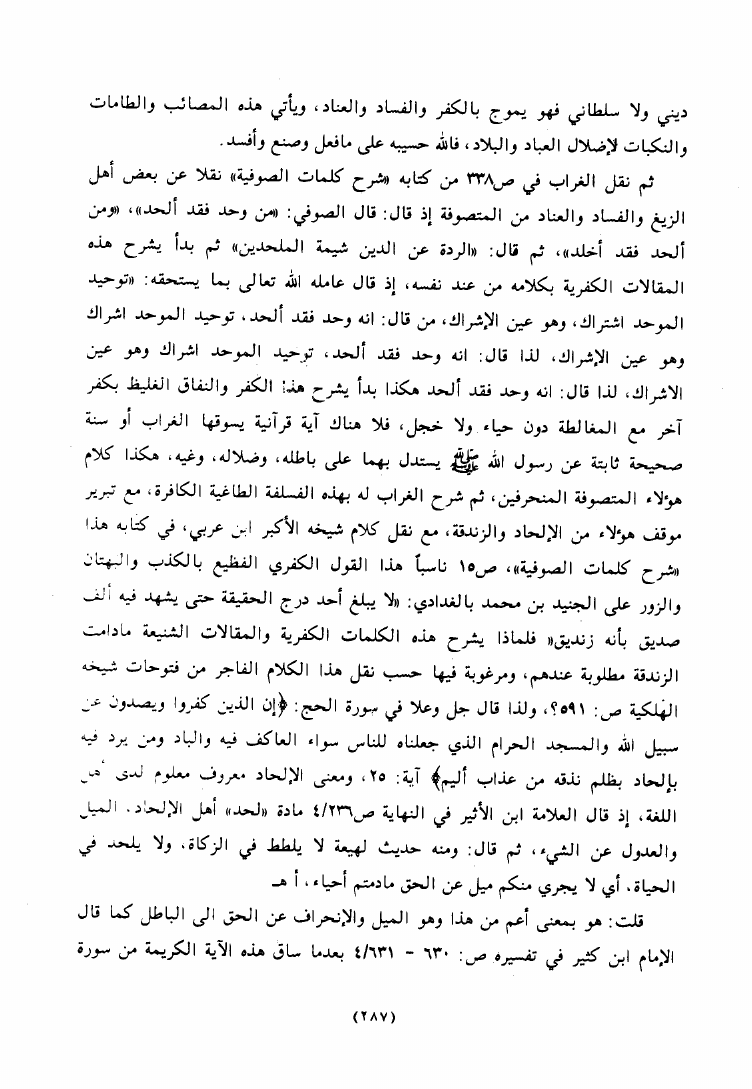 ديني ولا سلطاني فهو يموج بالكفر والفساد والعناد، ويأتي هذه المصائب والطامات
والنكبات لإضلال العباد والبلاد، فالله حسيبه على مافعل وصنع وأفسد.
ثم نقل الغراب في ص٣٣٨ من كتابه «شرح كلمات الصوفية» نقلا عن بعض أهل
الزيغ والفساد والعناد من المتصوفة إذ قال: قال الصوفي: «من وحد فقد ألحد»، «ومن
ألحد فقد أخلد»، ثم قال: «الردة عن الدين شيمة الملحدين» ثم بدأ يشرح هذه
المقالات الكفرية بكلامه من عند نفسه، إذ قال عامله الله تعالى بما يستحقه: «توحيد
الموحد اشتراك، وهو عين الإشراك، من قال: انه وحد فقد ألحد، توحيد الموحد اشراك
وهو عين الإشراك، لذا قال: انه وحد فقد ألحد، توحيد الموحد اشراك وهو عين
الاشراك، لذا قال: انه وحد فقد ألحد هكذا بدأ يشرح هذا الكفر والنفاق الغليظ بكفر
آخر مع المغالطة دون حياء ولا خجل، فلا هناك آية قرآنية يسوقها الغراب أو سنة
صحيحة ثابتة عن رسول الله ﷺ يستدل بهما على باطله، وضلاله، وغيه، هكذا كلام
هؤلاء المتصوفة المنحرفين، ثم شرح الغراب له بهذه الفسلفة الطاغية الكافرة، مع تبرير
موقف هؤلاء من الإلحاد والزندقة، مع نقل كلام شيخه الأكبر ابن عربي، في كتابه هذا
«شرح كلمات الصوفية»، ص١٥ ناسباً هذا القول الكفري الفظيع بالكذب والبهتان
والزور على الجنيد بن محمد بالغدادي: «لا يبلغ أحد درج الحقيقة حتى يشهد فيه ألف
صديق بأنه زنديق» فلماذا يشرح هذه الكلمات الكفرية والمقالات الشنيعة مادامت
الزندقة مطلوبة عندهم، ومرغوبة فيها حسب نقل هذا الكلام الفاجر من فتوحات شيخه
الهلكية ص: ٥٩١؟، ولذا قال جل وعلا في سورة الحج: ﴿إن الذين كفروا ويصدون عن
سبيل الله والمسجد الحرام الذي جعلناه للناس سواء العاكف فيه والباد ومن يرد فيه
بإلحاد بظلم نذقه من عذاب أليم﴾ آية: ٢٥، ومعنى الإلحاد معروف معلوم لدى أهل
اللغة، إذ قال العلامة ابن الأثير في النهاية ص٤/٢٣٦ مادة «لحد» أهل الإلحاد. الميل
والعدول عن الشيء، ثم قال: ومنه حديث لهيعة لا يلطط في الزكاة، ولا يلحد في
الحياة، أي لا يجري منكم ميل عن الحق مادمتم أحياء، أ هـ
قلت: هو بمعنى أعم من هذا وهو الميل والإنحراف عن الحق الى الباطل كما قال
الإمام ابن كثير في تفسيره ص: ٦٣٠ - ٤/٦٣١ بعدما ساق هذه الآية الكريمة من سورة
(٢٨٧)